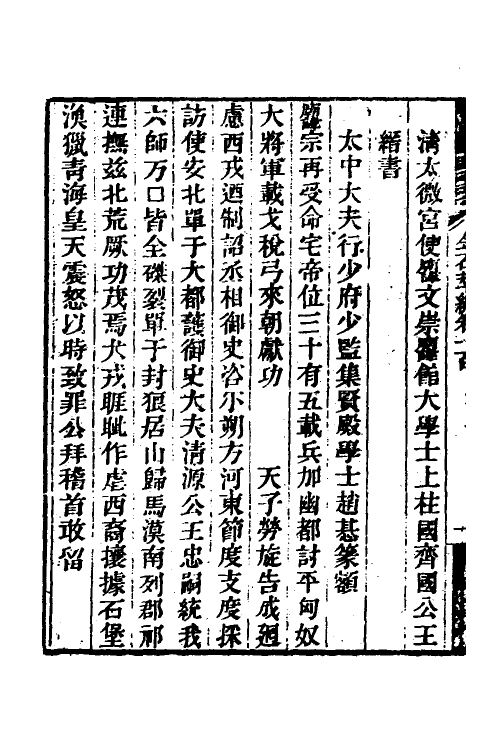 清太微宮使弘文崇玄館大學士上柱國齊國公王
縉書
太中大夫行少府少監集賢殿學士趙惎篆額
睿宗再受命宅帝位三十有五載兵加幽都討平匈奴
大將軍載戈稅弓來朝獻功　天子勞旋告成廻
慮西戎迺制詔丞相御史咨尒朔方河東節度支度採
訪使安北單于大都護御史大夫清源公王忠嗣統我
六師万口皆全磔裂單于封狼居山歸馬漠南列郡祁
連撫茲北荒厥功茂焉犬戎睚眦作虐西裔攘據石堡
漁獵青海皇天震怒以時致罪公拜稽首敢留